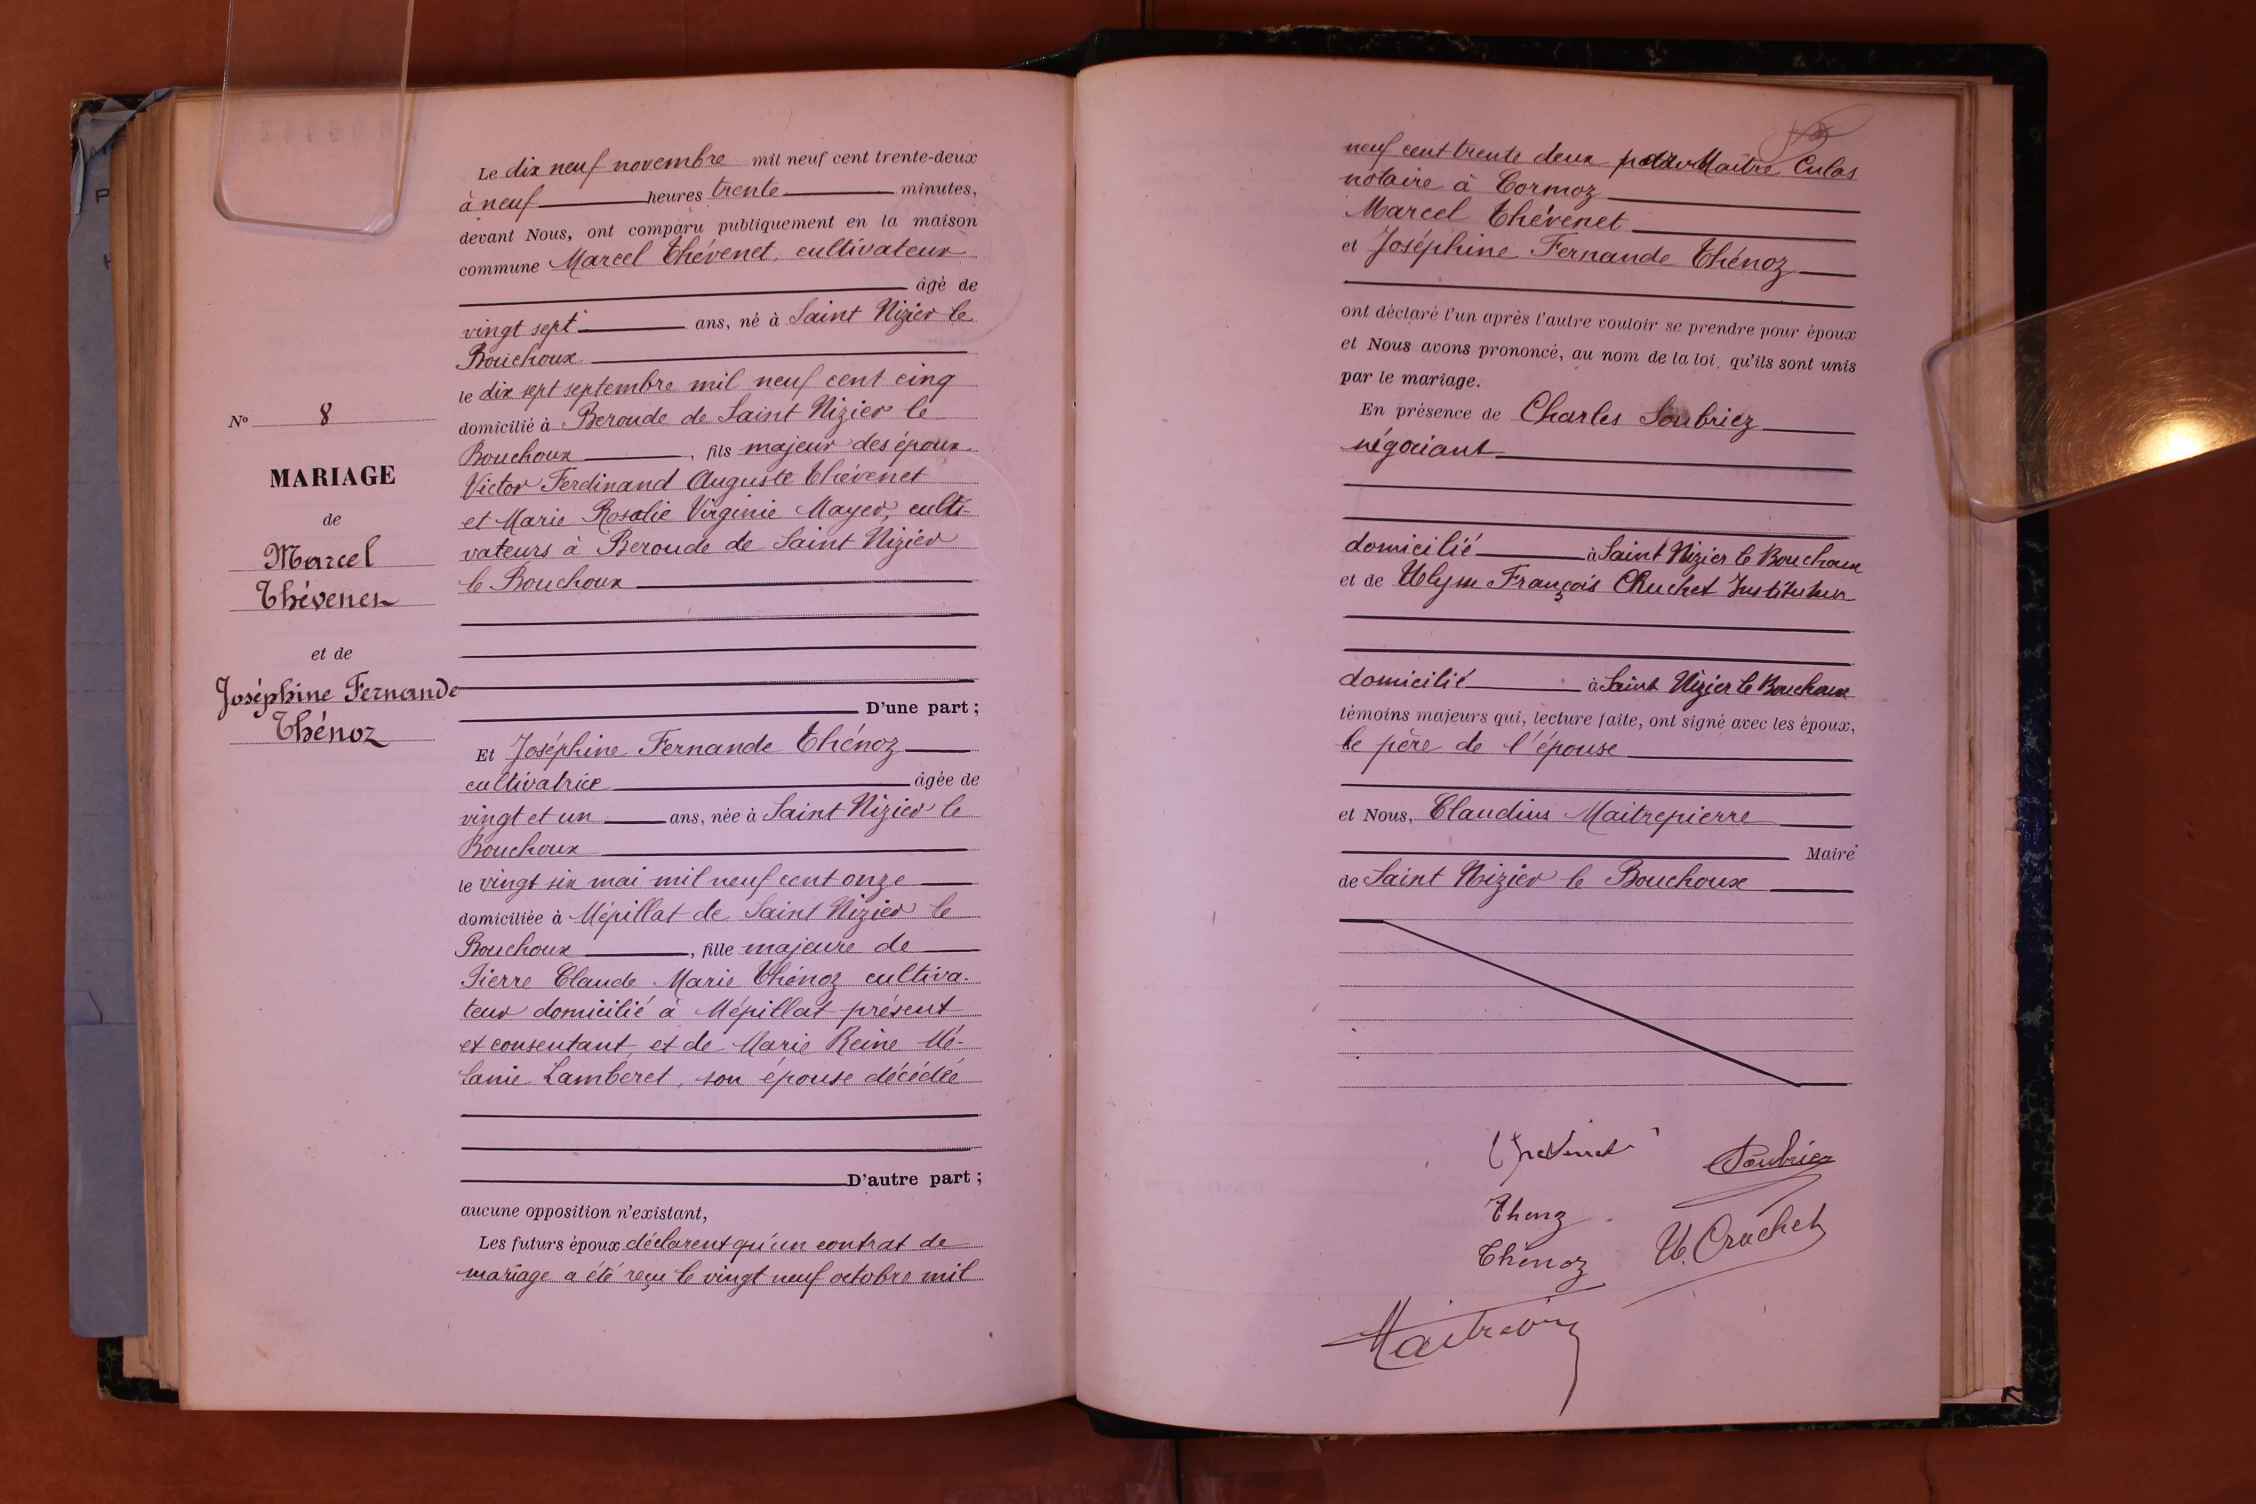 N° 8
MARIAGE
de
Marcel
Thévenet
et de
Joséphine Fernande
Thénoz
Le dix neuf novembre mil neuf cent trente-deux
à neuf heures trente minutes,
devant Nous, ont comparu publiquement en la maison
commune Marcel Thévenet, cultivateur
âgé de
vingt sept ans, né à Saint Nizier le
Bouchoux
le dix sept septembre mil neuf cent cinq
domicilié à Beroude de Saint Nizier le
Bouchoux, fils majeur des époux
Victor Ferdinand Auguste Thévenet
et Marie Rosalie Virginie Mayer, culti-
vateurs à Beroude de Saint Nizier
le Bouchoux
D'une part ;
Et Joséphine Fernande Thénoz
cultivatrice âgée de
vingt et un ans, née à Saint Nizier le
Bouchoux
le vingt six mai mil neuf cent onze
domiciliée à Mépillat de Saint Nizier le
Bouchoux, fille majeure de
Pierre Claude Marie Thénoz cultiva-
teur domicilié à Mépillat présent
et consentant, et de Marie Reine Mé-
lanie Lamberet, son épouse décédée
D'autre part ;
aucune opposition n'existant,
Les futurs époux déclarent qu'un contrat de
mariage a été reçu le vingt neuf octobre mil
neuf cent trente deux Maître Culas
notaire à Cormoz
Marcel Thévenet
et Joséphine Fernande Thénoz
ont déclaré l'un après l'autre vouloir se prendre pour époux
et Nous avons prononcé, au nom de la loi, qu'ils sont unis
par le mariage.
En présence de Charles Soubriez
négociant
domicilié à Saint Nizier le Bouchoux
et de Ulysse François Cruchet Instituteur
domicilié à Saint Nizier le Bouchoux
témoins majeurs qui, lecture faite, ont signé avec les époux,
le père de l'épouse
et Nous, Claudius Maitrepierre
Maire
de Saint Nizier le Bouchoux
Thevenet
Soubriez
Thenoz
Thénoz
U. Cruchet